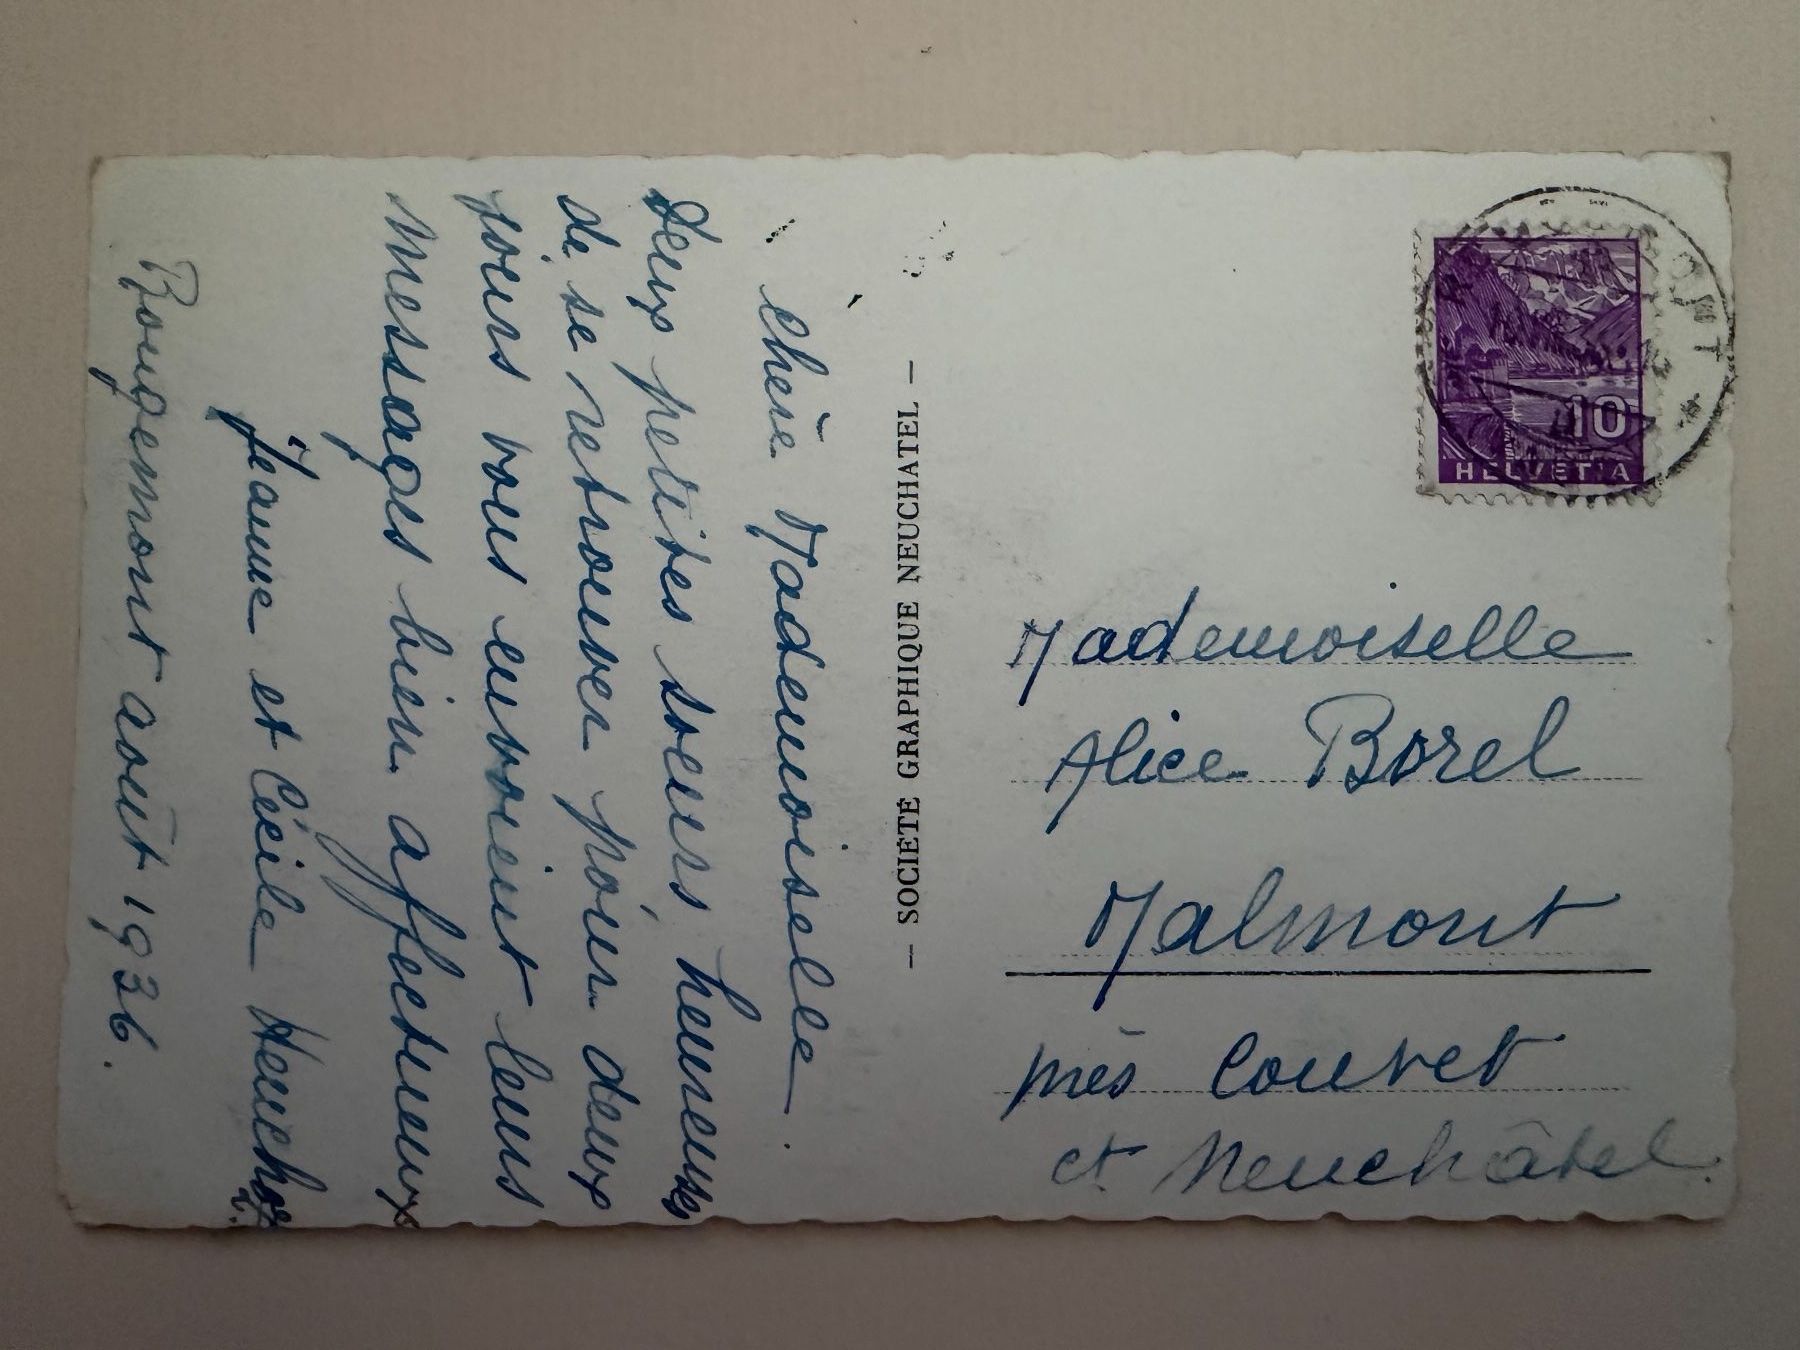 Chère Mademoiselle.
Deux petites soeurs heureuses
de se retrouver pour deux
jours vous envoient leurs
messages bien affectueux
Jeanne et Cécile
Rougemont août 1936.
— SOCIÉTÉ GRAPHIQUE NEUCHATEL —
10
HELVETIA
Mademoiselle
Alice Borel
Malmont
près Couvet
Ct. Neuchâtel.